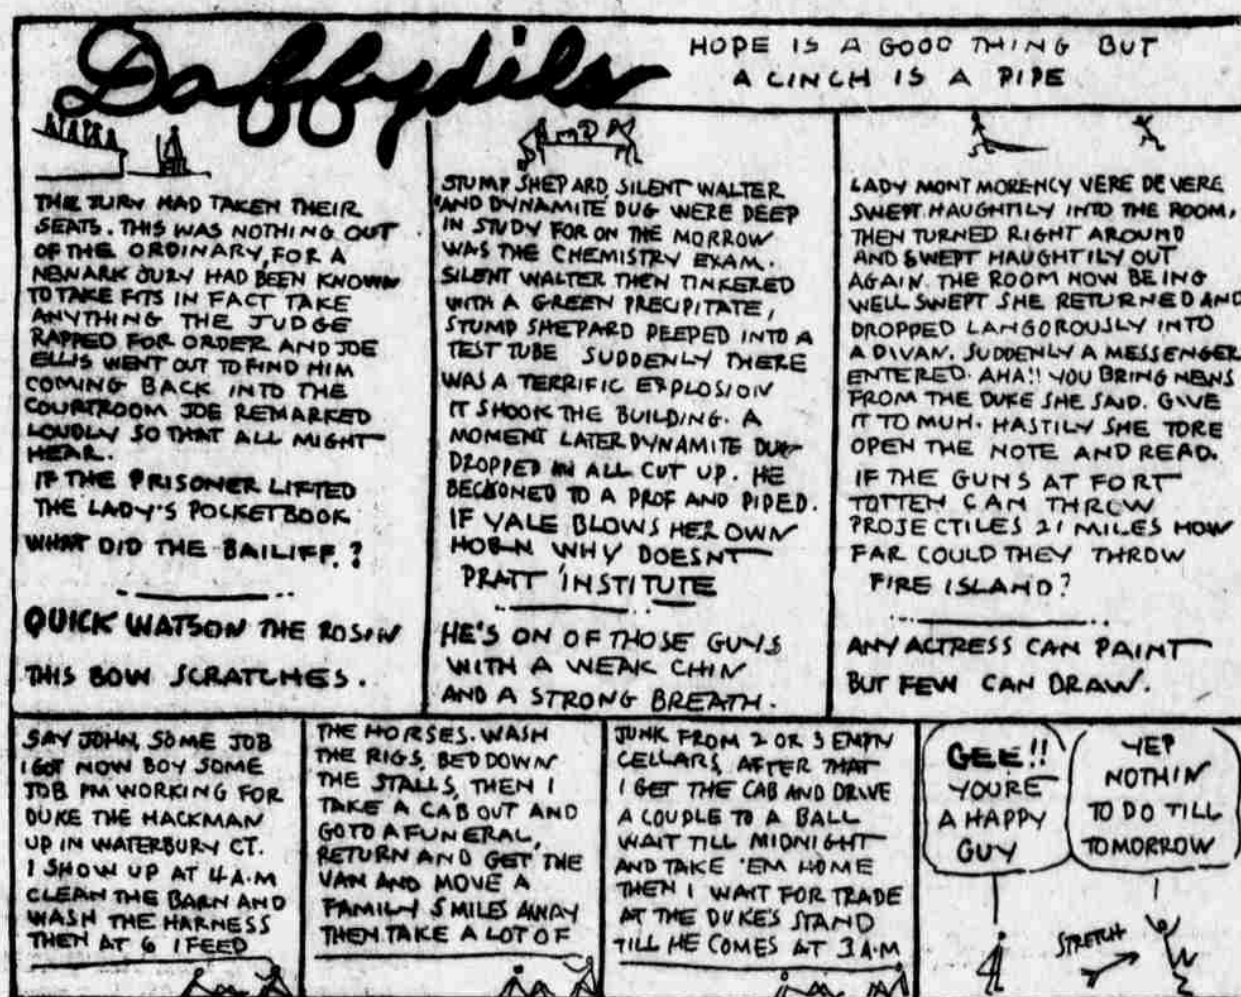 Daffydils
HOPE IS A GOOD THING BUT
A CINCH IS A PIPE
THE JURY HAD TAKEN THEIR
SEATS. THIS WAS NOTHING OUT
OF THE ORDINARY, FOR A
NEWARK JURY HAD BEEN KNOWN
TO TAKE FITS IN FACT TAKE
ANYTHING THE JUDGE
RAPPED FOR ORDER AND JOE
ELLIS WENT OUT TO FIND HIM
COMING BACK INTO THE
COURTROOM JOE REMARKED
LOUDLY SO THAT ALL MIGHT
HEAR.
IF THE PRISONER LIFTED
THE LADY'S POCKETBOOK
WHAT DID THE BAILIFF.?
QUICK WATSON THE ROSIN
THIS BOW SCRATCHES.
STUMP SHEPARD, SILENT WALTER
AND DYNAMITE DUG WERE DEEP
IN STUDY FOR ON THE MORROW
WAS THE CHEMISTRY EXAM.
SILENT WALTER THEN TINKERED
WITH A GREEN PRECIPITATE,
STUMP SHEPARD PEEPED INTO A
TEST TUBE SUDDENLY THERE
WAS A TERRIFIC EXPLOSION
IT SHOOK THE BUILDING. A
MOMENT LATER DYNAMITE DUG
DROPPED IN ALL CUT UP. HE
BECKONED TO A PROF AND PIPED.
IF YALE BLOWS HER OWN
HORN WHY DOESNT
PRATT INSTITUTE
HE'S ON OF THOSE GUYS
WITH A WEAK CHIN
AND A STRONG BREATH.
LADY MONT MORENCY VERE DE VERE
SWEPT HAUGHTILY INTO THE ROOM,
THEN TURNED RIGHT AROUND
AND SWEPT HAUGHTILY OUT
AGAIN. THE ROOM NOW BEING
WELL SWEPT SHE RETURNED AND
DROPPED LANGOROUSLY INTO
A DIVAN. SUDDENLY A MESSENGER
ENTERED. AHA!! YOU BRING NEWS
FROM THE DUKE SHE SAID. GIVE
IT TO MUH. HASTILY SHE TORE
OPEN THE NOTE AND READ.
IF THE GUNS AT FORT
TOTTEN CAN THROW
PROJECTILES 21 MILES HOW
FAR COULD THEY THROW
FIRE ISLAND?
ANY ACTRESS CAN PAINT
BUT FEW CAN DRAW.
SAY JOHN, SOME JOB
I GOT NOW BOY SOME
JOB I'M WORKING FOR
DUKE THE HACKMAN
UP IN WATERBURY CT.
I SHOW UP AT 4 A.M
CLEAN THE BARN AND
WASH THE HARNESS
THEN AT 6 I FEED
THE HORSES. WASH
THE RIGS, BED DOWN
THE STALLS, THEN I
TAKE A CAB OUT AND
GO TO A FUNERAL,
RETURN AND GET THE
VAN AND MOVE A
FAMILY 5 MILES AWAY
THEN TAKE A LOT OF
JUNK FROM 2 OR 3 EMPTY
CELLARS, AFTER THAT
I GET THE CAB AND DRIVE
A COUPLE TO A BALL
WAIT TILL MIDNIGHT
AND TAKE 'EM HOME
THEN I WAIT FOR TRADE
AT THE DUKE'S STAND
TILL HE COMES AT 3 A.M
GEE!!
YOURE
A HAPPY
GUY
YEP
NOTHIN
TO DO TILL
TOMORROW
STRETCH